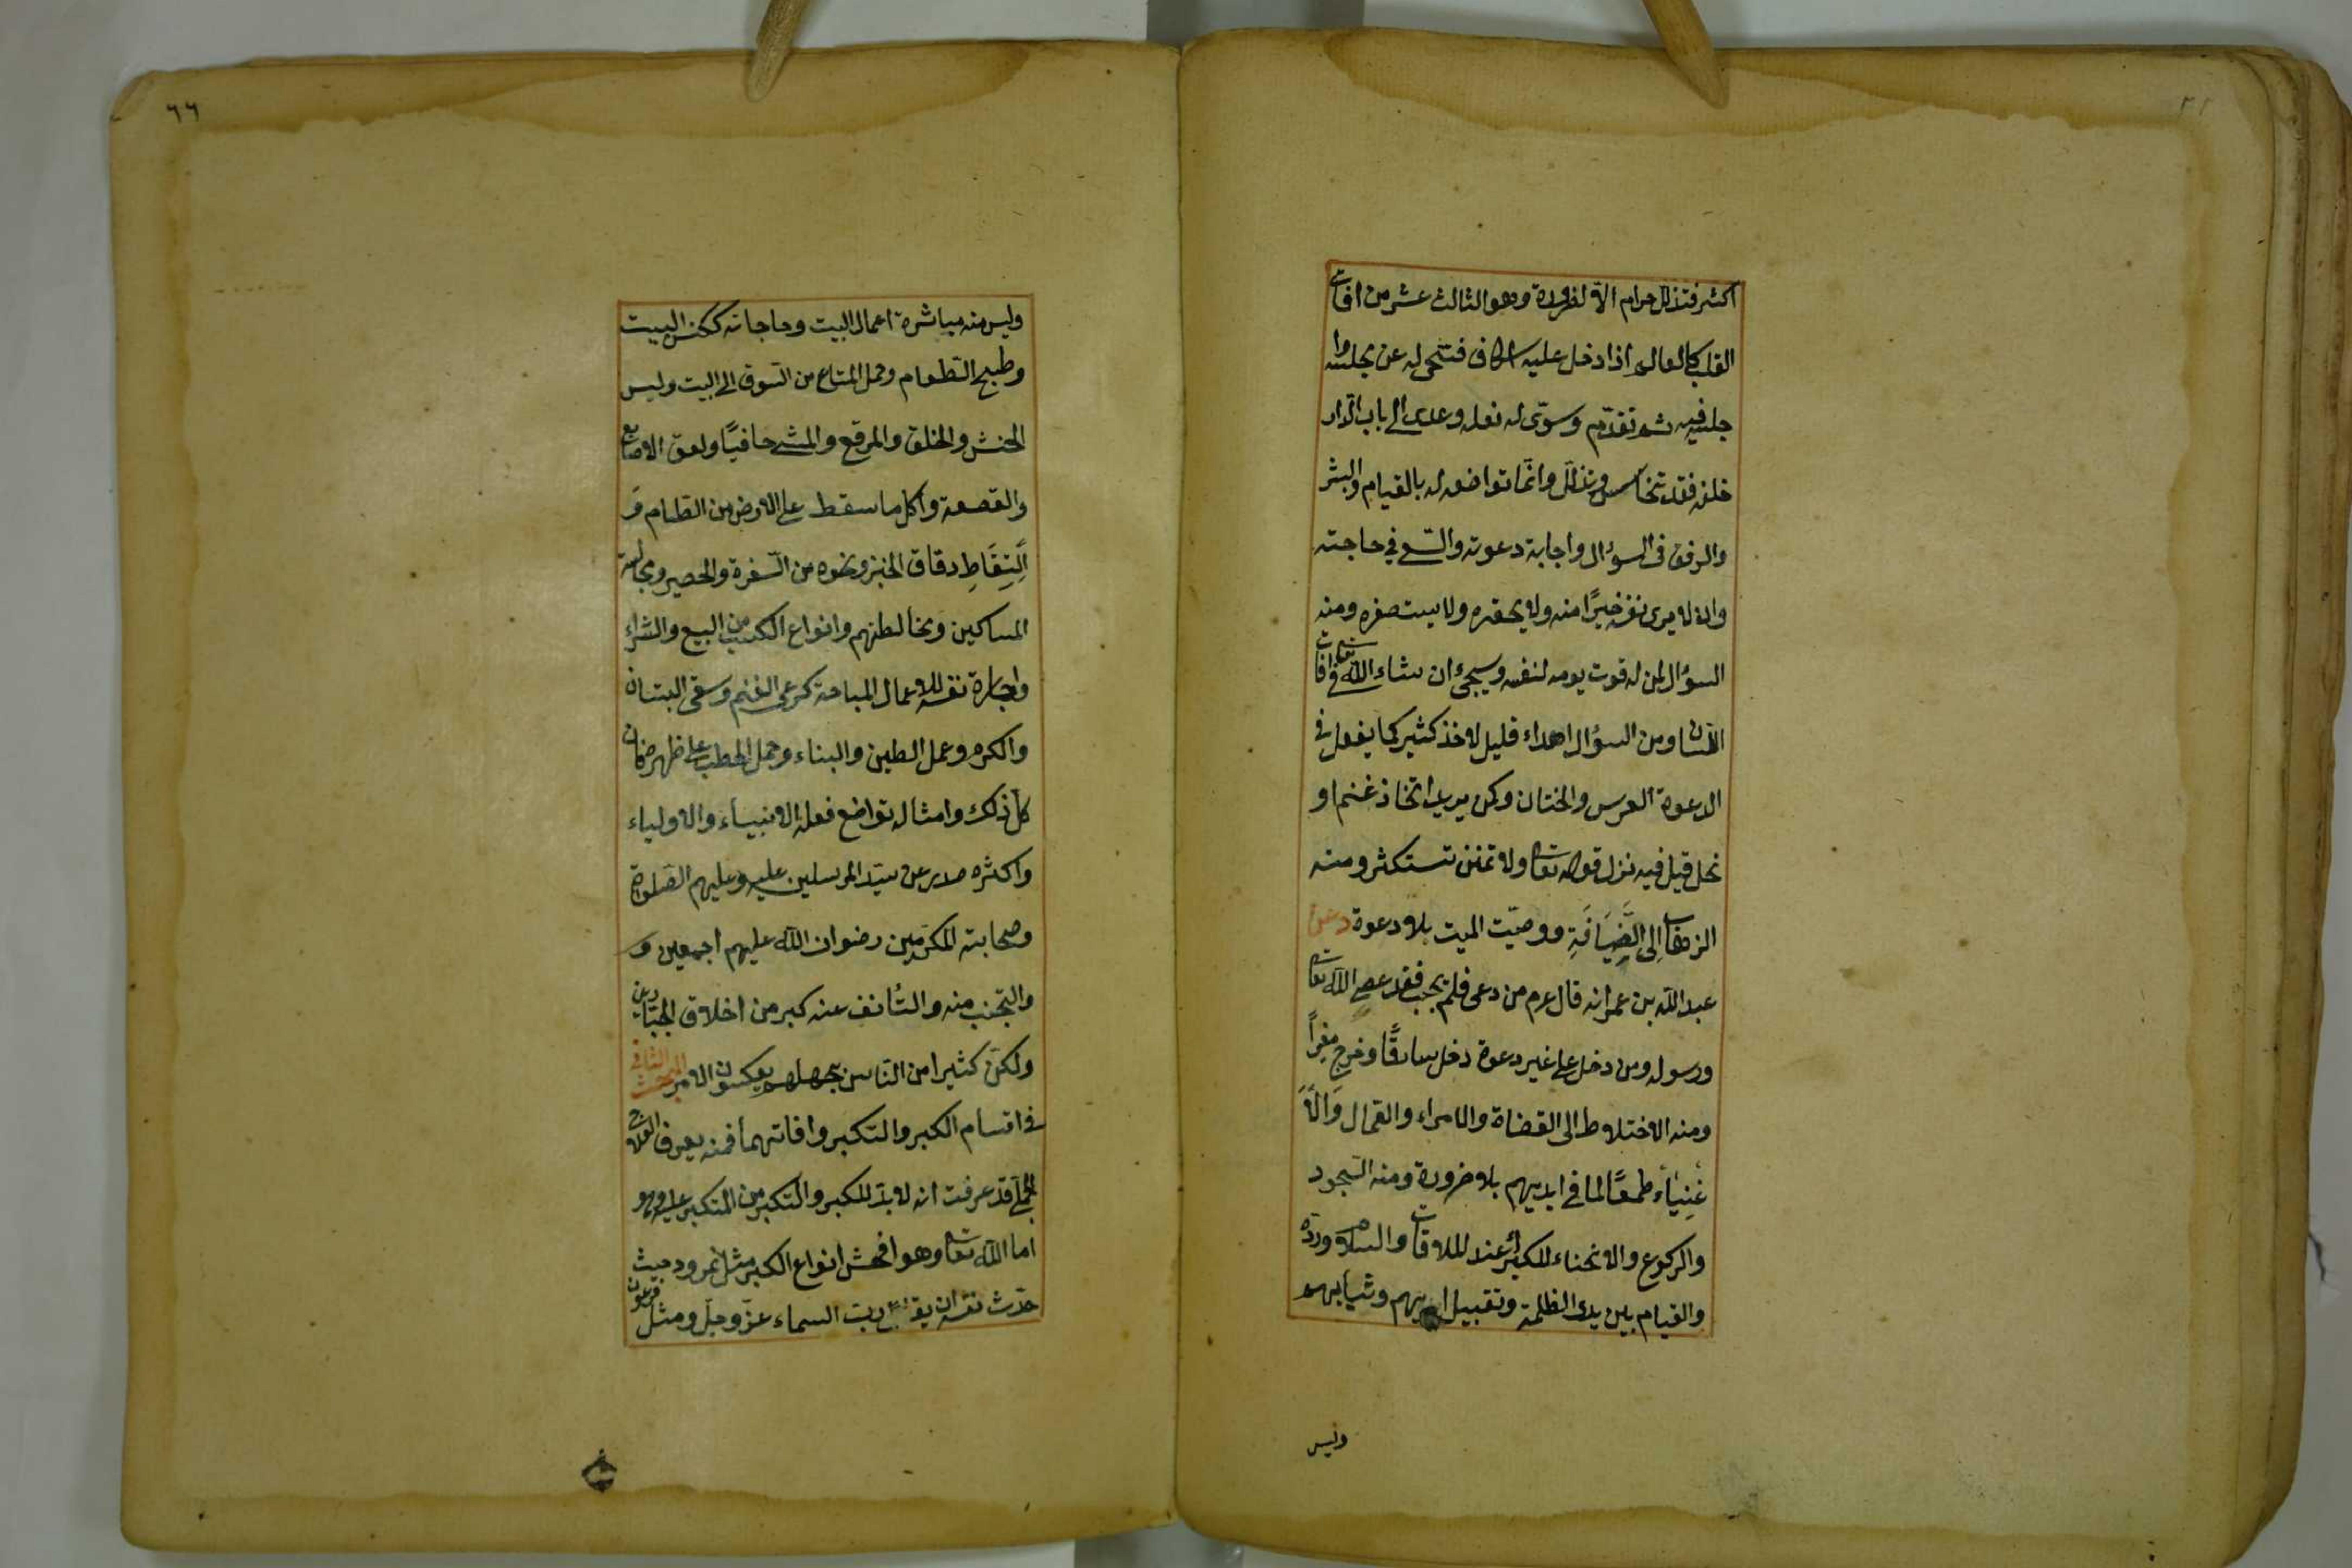 اكثر فتذلل حرام الا لضرورة وهو الثالث عشر من افات
القلب كالعالم اذا دخل عليه اسكاف فتنحى له عن مجلسه وا
جلسه فيه ثم تقدّم وسوّى له نعله وعدى الى باب الدّار
خلفه فقد تخاسس وتذلّل وانّما تواضعه له بالقيام والبشر
والرفق فى السوٴال واجابة دعوته والسّعى في حاجته
وان لا يرى نفسه خيرًا منه ولا يحقره ولا يستصغره ومنه
السوٴال لمن له قوت يومه لنفسه وسيجئ ان شاء الله تعالى في افات
اللّسان ومن السوٴال اهداء قليل لاخذ كثير كما يفعل في
الدعوة العرس والختان وكمن يريد اتخاذ غنم او
نحل قيل فيه نزل قوله تعالى ولا تمنن تستكثر ومنه
الزهاب اِلى الضِّيَافَةِ ووصيّت الميت بلا دعوة دعن
عبد الله بن عمر انه قال عرم من دعى فلم يجب فقد عصى الله تعالى
ورسوله ومن دخل على غير دعوة دخل سارقًا وخرج مغيرًا
ومنه الاختلاط الى القضاة والامراء والعمال وَالاَ
غْنِيَاء طمعًا لما في ايديهم بلا ضرورة ومنه السّجود
والركوع والانحناء للكبرأ عند الملاقات والسلام وردّه
والقيام بين يدى الظلمة وتقبيل ايديهم وثيابهم
وليس
٦٦
وليس منه مباشرة اعمال البيت وحاجاته ككنس البيت
وطبح الطّعام وحمل المتاع من السّوق الى البيت ولبس
الخشن والخلق والمرقع والمشى حافيًا ولعق الاصابع
والقصعة واكل ما سقط على الارض من الطعام وَ
اْلتِقَاطِ دقاق الخبز ونحوه من السّفرة والحصير ومجالسة
المساكين ومخالطتهم وانواع الكسب من البيع والشراء
واجارة نفسه للاعمال المباحة كرعى الغنم وسقى البستان
والكرم وعمل الطين والبناء وحمل الحطب على ظهره فان
كل ذلك وامثاله تواضع فعله الانبياء والاولياء
واكثره صدر عن سيّد المرسلين عليه وعليهم الصّلوة
وصحابته المكرّمين رضوان الله عليهم اجمعين و
والتجنب منه والتأنف عنه كبر من اخلاق الجبّارين
ولكن كثيرا من النّاس بجهلهم يعكسون الامر المبحث الثانى
في اقسام الكبر والتكبر وافاتهما فمنه يعرف العلاج
الجملى قد عرفت انه لا بدّ للكبر والتكبر من المتكبر عليه وهو
اما الله تعالى وهو افحش انواع الكبر مثل نمرود حيث
حدّث نفسه ان يقاتل ربّ السماء عزّ وجلّ ومثل فرعون